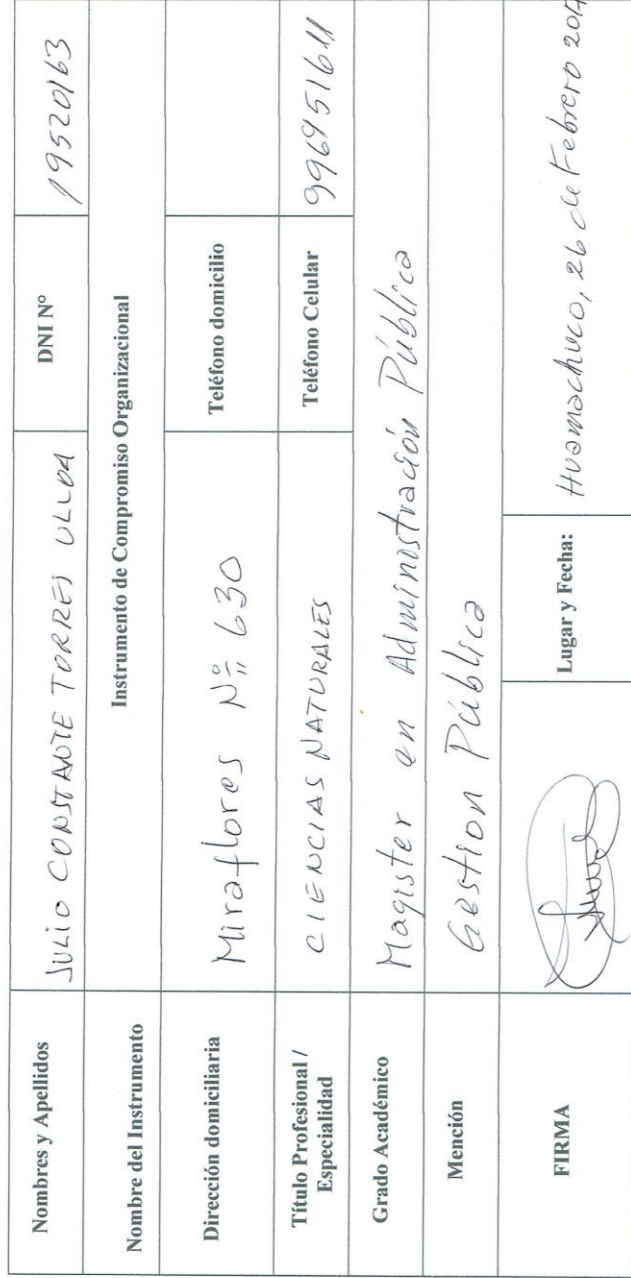 Nombres y Apellidos JULIO CONSTANTE TORRES ULLOA DNI N° 19520163
Nombre del Instrumento Instrumento de Compromiso Organizacional
Dirección domiciliaria Miraflores Nº 630 Teléfono domicilio
Título Profesional / Especialidad CIENCIAS NATURALES Teléfono Celular
Grado Académico Magister en Administración Pública
Mención Gestion Pública
FIRMA Lugar y Fecha: Huamachuco, 26 de Febrero